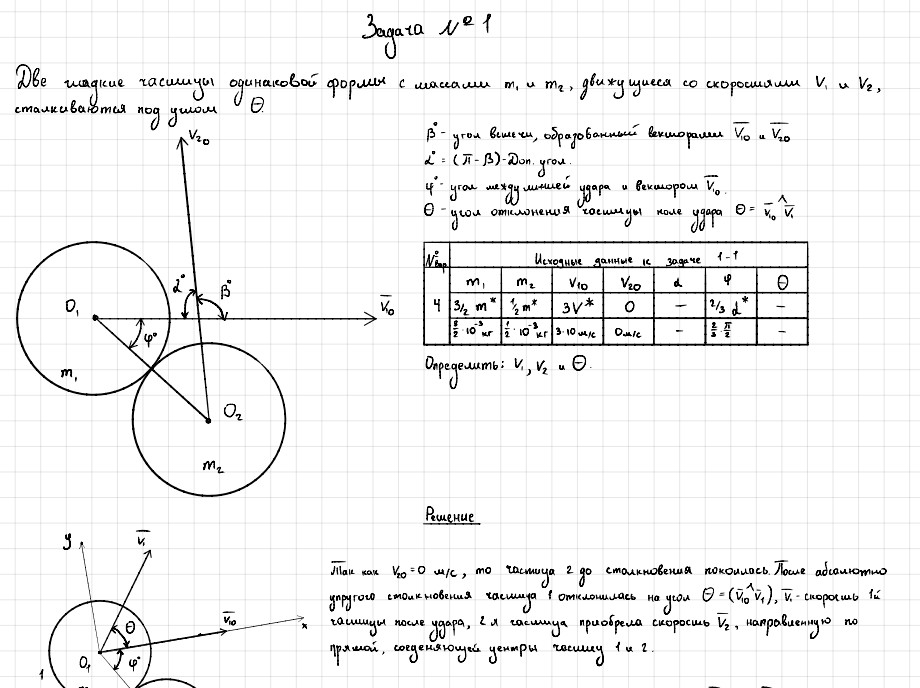 Задача №1
Две гладкие частицы одинаковой формы с массами m₁ и m₂, движущиеся со скоростями V₁ и V₂,
сталкиваются под углом Θ.
V₂₀
β° - угол встечи, образованный векторами V̅₁₀ и V̅₂₀
α° = (π - β) - Доп. угол.
φ° - угол между линией удара и вектором V̅₁₀.
Θ - угол отклонения частицы поле удара Θ = V̅₁₀ ^ V̅₁
№ вар. Исходные данные к задаче 1-1
m₁ m₂ V₁₀ V₂₀ α φ Θ
4 3/2 m* 1/2 m* 3V* 0 — 2/3 α* —
3/2 · 10⁻³ кг 1/2 · 10⁻³ кг 3·10 м/с 0 м/с — 2/3 π/2 —
Определить: V₁, V₂ и Θ.
α° β°
O₁ V̅₁₀
φ°
m₁
O₂
m₂
Решение
y V̅₁
Так как V₂₀ = 0 м/с, то частица 2 до столкновения покоилась. После абсолютно
упругого столкновения частица 1 отклонилась на угол Θ = (V̅₁₀ ^ V̅₁), V̅₁ - скорость 1й
частицы после удара, 2 я частица приобрела скорость V̅₂, направленную по
прямой, соеденяющей центры частиц 1 и 2.
V̅₁₀ x
Θ
O₁ φ°
1